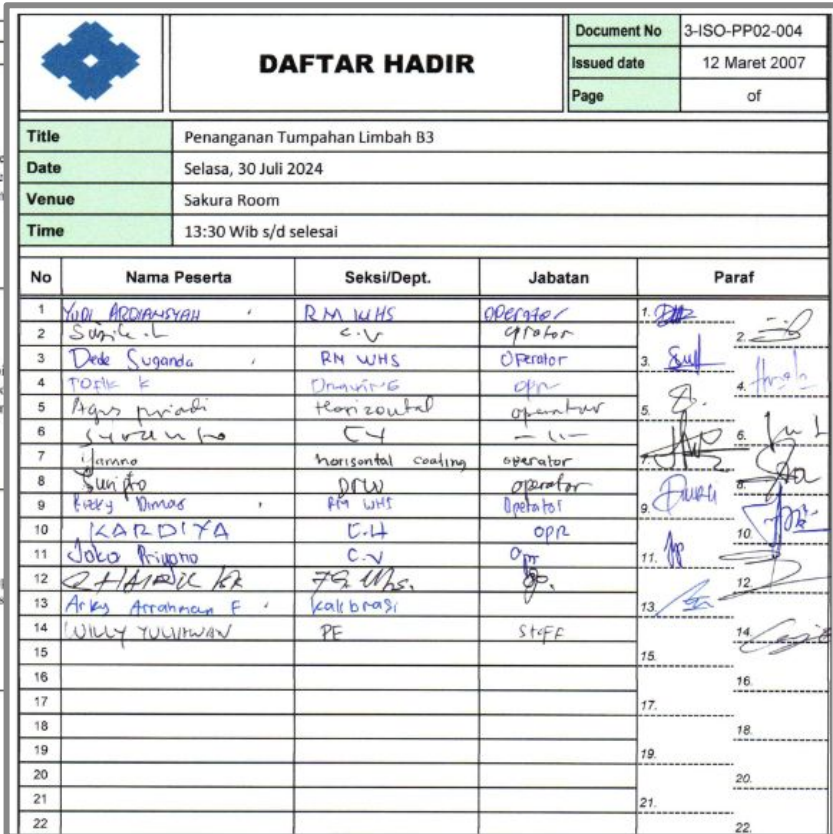 DAFTAR HADIR
Document No 3-ISO-PP02-004
Issued date 12 Maret 2007
Page of
Title Penanganan Tumpahan Limbah B3
Date Selasa, 30 Juli 2024
Venue Sakura Room
Time 13:30 Wib s/d selesai
No Nama Peserta Seksi/Dept. Jabatan Paraf
1 YUDI ARDIANSYAH RM WHS Operator 1.
2 C.V 2.
3 Dede Suganda RM WHS Operator 3.
4 TOFIK K opr 4.
5 Agus priadi Horizontal operator 5.
6 CV 6.
7 horisontal coating operator 7.
8 DRW operator 8.
9 Rizky Dimas RM WHS Operator 9.
10 KARDIYA C.H OPR 10.
11 Joko Priyono C.V Opr 11.
12 12.
13 Arky Arrahman F kalibrasi 13.
14 WILLY PE Staff 14.
15 15.
16 16.
17 17.
18 18.
19 19.
20 20.
21 21.
22 22.